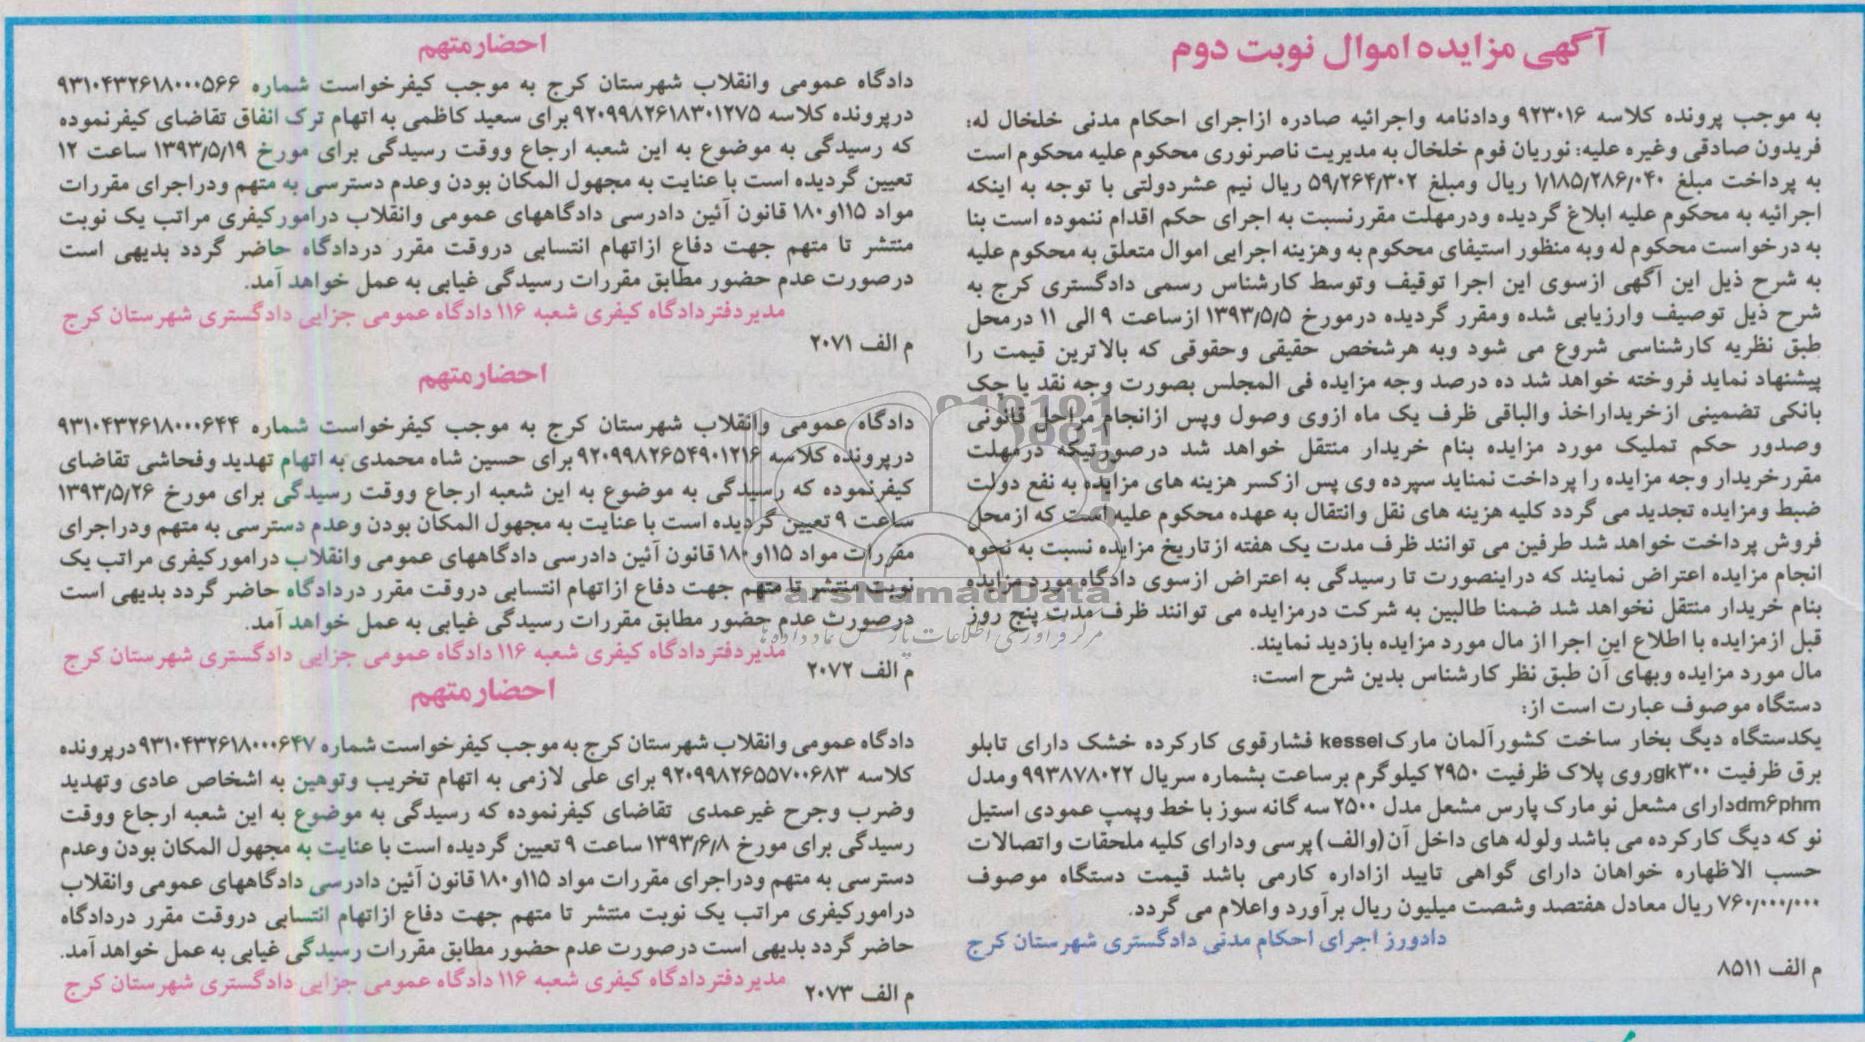 آگهی مزایده اموال نوبت دوم
به موجب پرونده کلاسه ۹۲۳۰۱۶ ودادنامه واجرائیه صادره ازاجرای احکام مدنی خلخال له:
فریدون صادقی وغیره علیه: نوریان فوم خلخال به مدیریت ناصرنوری محکوم علیه محکوم است
به پرداخت مبلغ ۱/۱۸۵/۲۸۶/۰۴۰ ریال ومبلغ ۵۹/۲۶۴/۳۰۲ ریال نیم عشردولتی با توجه به اینکه
اجرائیه به محکوم علیه ابلاغ گردیده ودرمهلت مقررنسبت به اجرای حکم اقدام ننموده است بنا
به درخواست محکوم له وبه منظور استیفای محکوم به وهزینه اجرایی اموال متعلق به محکوم علیه
به شرح ذیل این آگهی ازسوی این اجرا توقیف وتوسط کارشناس رسمی دادگستری کرج به
شرح ذیل توصیف وارزیابی شده ومقرر گردیده درمورخ ۱۳۹۳/۵/۵ ازساعت ۹ الی ۱۱ درمحل
طبق نظریه کارشناسی شروع می شود وبه هرشخص حقیقی وحقوقی که بالاترین قیمت را
پیشنهاد نماید فروخته خواهد شد ده درصد وجه مزایده فی المجلس بصورت وجه نقد یا چک
بانکی تضمینی ازخریداراخذ والباقی ظرف یک ماه ازوی وصول وپس ازانجام مراحل قانونی
وصدور حکم تملیک مورد مزایده بنام خریدار منتقل خواهد شد درصورتیکه درمهلت
مقررخریدار وجه مزایده را پرداخت ننماید سپرده وی پس ازکسر هزینه های مزایده به نفع دولت
ضبط ومزایده تجدید می گردد کلیه هزینه های نقل وانتقال به عهده محکوم علیه است که ازمحل
فروش پرداخت خواهد شد طرفین می توانند ظرف مدت یک هفته ازتاریخ مزایده نسبت به نحوه
انجام مزایده اعتراض نمایند که دراینصورت تا رسیدگی به اعتراض ازسوی دادگاه مورد مزایده
بنام خریدار منتقل نخواهد شد ضمنا طالبین به شرکت درمزایده می توانند ظرف مدت پنج روز
قبل ازمزایده با اطلاع این اجرا از مال مورد مزایده بازدید نمایند.
مال مورد مزایده وبهای آن طبق نظر کارشناس بدین شرح است:
دستگاه موصوف عبارت است از:
یکدستگاه دیگ بخار ساخت کشورآلمان مارک kessel فشارقوی کارکرده خشک دارای تابلو
برق ظرفیت gk۳۰۰ روی پلاک ظرفیت ۲۹۵۰ کیلوگرم برساعت بشماره سریال ۹۹۳۸۷۸۰۲۲ ومدل
dm۶phm دارای مشعل نو مارک پارس مشعل مدل ۲۵۰۰ سه گانه سوز با خط وپمپ عمودی استیل
نو که دیگ کارکرده می باشد ولوله های داخل آن (والف) پرسی ودارای کلیه ملحقات واتصالات
حسب الاظهاره خواهان دارای گواهی تایید ازاداره کارمی باشد قیمت دستگاه موصوف
۷۶۰/۰۰۰/۰۰۰ ریال معادل هفتصد وشصت میلیون ریال برآورد واعلام می گردد.
دادورز اجرای احکام مدنی دادگستری شهرستان کرج
م الف ۸۵۱۱
احضارمتهم
دادگاه عمومی وانقلاب شهرستان کرج به موجب کیفرخواست شماره ۹۳۱۰۴۳۲۶۱۸۰۰۰۵۶۶
درپرونده کلاسه ۹۲۰۹۹۸۲۶۱۸۳۰۱۲۷۵ برای سعید کاظمی به اتهام ترک انفاق تقاضای کیفرنموده
که رسیدگی به موضوع به این شعبه ارجاع ووقت رسیدگی برای مورخ ۱۳۹۳/۵/۱۹ ساعت ۱۲
تعیین گردیده است با عنایت به مجهول المکان بودن وعدم دسترسی به متهم ودراجرای مقررات
مواد ۱۱۵و۱۸۰ قانون آئین دادرسی دادگاههای عمومی وانقلاب درامورکیفری مراتب یک نوبت
منتشر تا متهم جهت دفاع ازاتهام انتسابی دروقت مقرر دردادگاه حاضر گردد بدیهی است
درصورت عدم حضور مطابق مقررات رسیدگی غیابی به عمل خواهد آمد.
مدیردفتردادگاه کیفری شعبه ۱۱۶ دادگاه عمومی جزایی دادگستری شهرستان کرج
م الف ۲۰۷۱
احضارمتهم
دادگاه عمومی وانقلاب شهرستان کرج به موجب کیفرخواست شماره ۹۳۱۰۴۳۲۶۱۸۰۰۰۶۴۴
درپرونده کلاسه ۹۲۰۹۹۸۲۶۵۴۹۰۱۲۱۶ برای حسین شاه محمدی به اتهام تهدید وفحاشی تقاضای
کیفرنموده که رسیدگی به موضوع به این شعبه ارجاع ووقت رسیدگی برای مورخ ۱۳۹۳/۵/۲۶
ساعت ۹ تعیین گردیده است با عنایت به مجهول المکان بودن وعدم دسترسی به متهم ودراجرای
مقررات مواد ۱۱۵و۱۸۰ قانون آئین دادرسی دادگاههای عمومی وانقلاب درامورکیفری مراتب یک
نوبت منتشر تا متهم جهت دفاع ازاتهام انتسابی دروقت مقرر دردادگاه حاضر گردد بدیهی است
درصورت عدم حضور مطابق مقررات رسیدگی غیابی به عمل خواهد آمد.
مدیردفتردادگاه کیفری شعبه ۱۱۶ دادگاه عمومی جزایی دادگستری شهرستان کرج
م الف ۲۰۷۲
احضارمتهم
دادگاه عمومی وانقلاب شهرستان کرج به موجب کیفرخواست شماره ۹۳۱۰۴۳۲۶۱۸۰۰۰۶۴۷ درپرونده
کلاسه ۹۲۰۹۹۸۲۶۵۵۷۰۰۶۸۳ برای علی لازمی به اتهام تخریب وتوهین به اشخاص عادی وتهدید
وضرب وجرح غیرعمدی تقاضای کیفرنموده که رسیدگی به موضوع به این شعبه ارجاع ووقت
رسیدگی برای مورخ ۱۳۹۳/۶/۸ ساعت ۹ تعیین گردیده است با عنایت به مجهول المکان بودن وعدم
دسترسی به متهم ودراجرای مقررات مواد ۱۱۵و۱۸۰ قانون آئین دادرسی دادگاههای عمومی وانقلاب
درامورکیفری مراتب یک نوبت منتشر تا متهم جهت دفاع ازاتهام انتسابی دروقت مقرر دردادگاه
حاضر گردد بدیهی است درصورت عدم حضور مطابق مقررات رسیدگی غیابی به عمل خواهد آمد.
مدیردفتردادگاه کیفری شعبه ۱۱۶ دادگاه عمومی جزایی دادگستری شهرستان کرج
م الف ۲۰۷۳
ParsNamadData
مرکز فرآوری اطلاعات پارس نماد داده ها